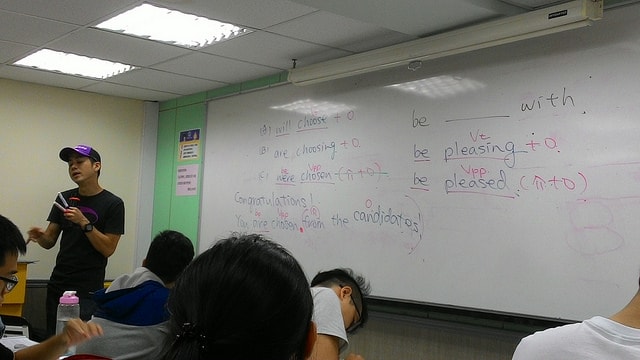 (A) will choose + O
(B) are choosing + O.
(C) were chosen (介+O)
be Vpp
Congratulations!
be Vpp (介) O
You are chosen from the candidates!
be ______ with
Vt
be pleasing + O.
Vpp
be pleased (介+O)